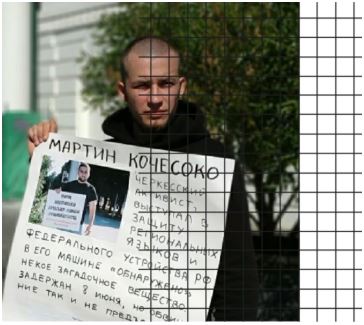 МАРТИН КОЧЕСОКО
ЧЕРКЕССКИЙ
АКТИВИСТ.
ВЫСТУПАЛ В
ЗАЩИТУ
РЕГИОНАЛЬНЫХ
ЯЗЫКОВ И
ФЕДЕРАЛЬНОГО УСТРОЙСТВА РФ
В ЕГО МАШИНЕ «ОБНАРУЖЕНО»
НЕКОЕ ЗАГАДОЧНОЕ ВЕЩЕСТВО.
ЗАДЕРЖАН 8 ИЮНЯ,
НИЕ ТАК И НЕ